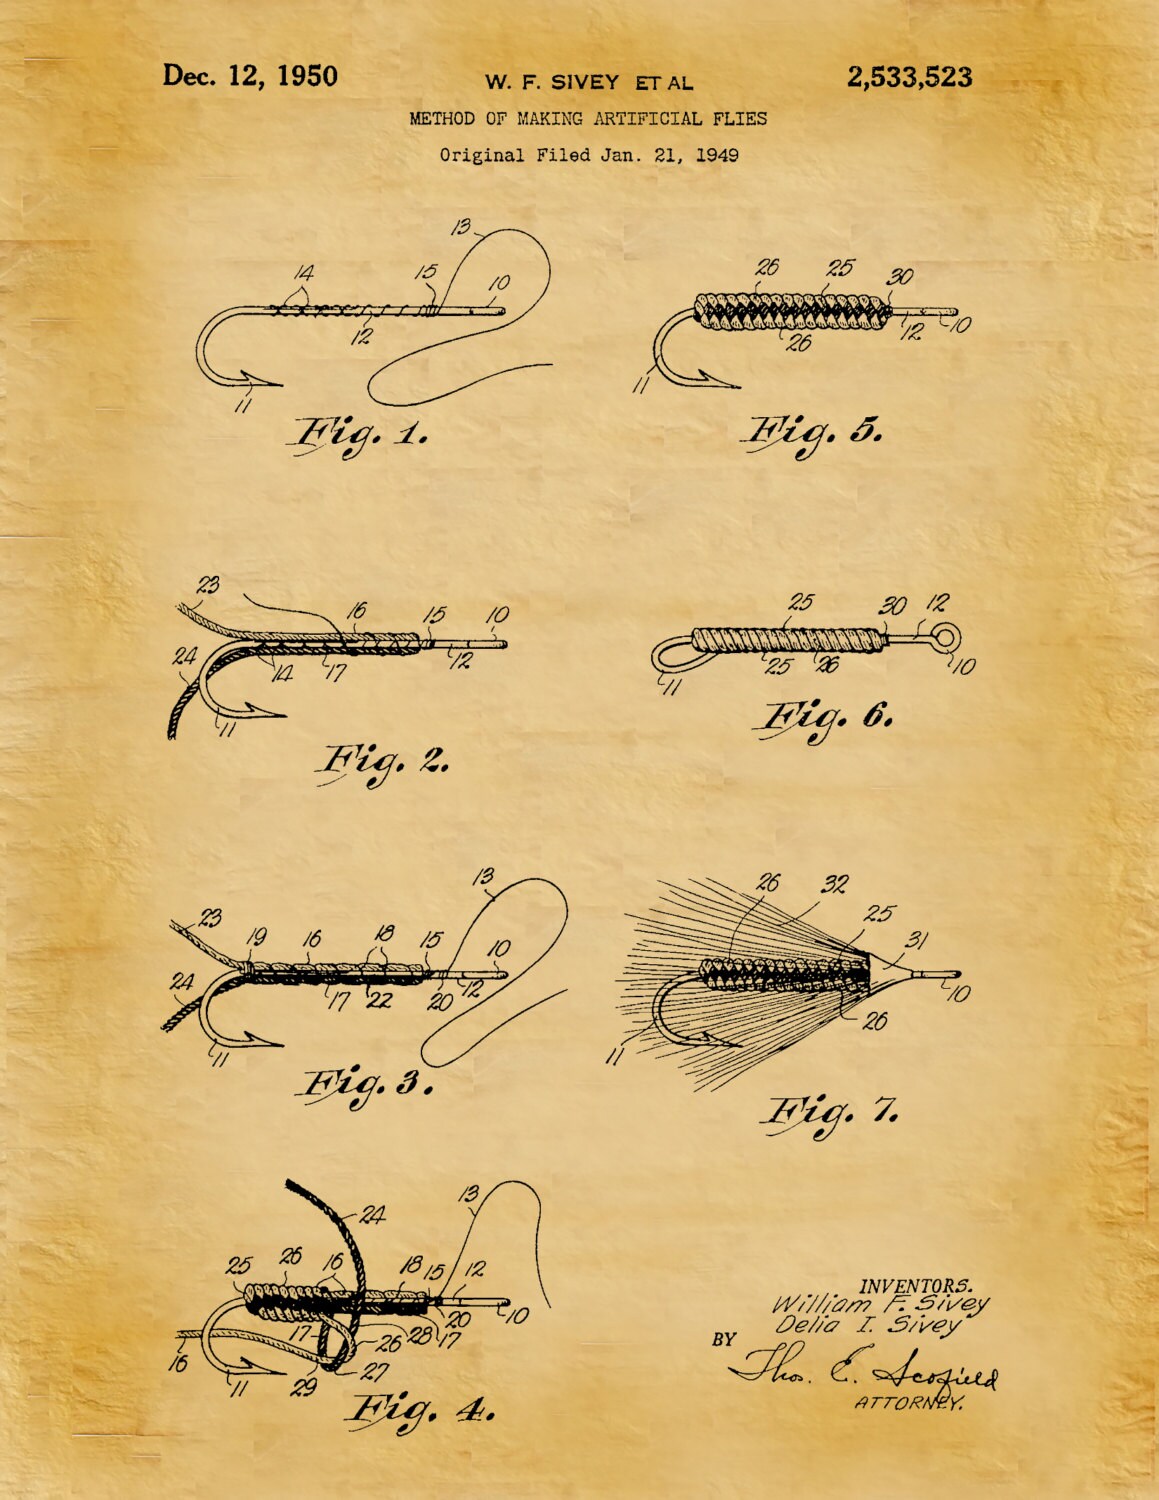 Dec. 12, 1950 W. F. SIVEY ET AL 2,533,523
METHOD OF MAKING ARTIFICIAL FLIES
Original Filed Jan. 21, 1949
13
14 15 10
12
11
Fig. 1.
26 25 30
12 10
26
11
Fig. 5.
23 16 15 10
24 14 17 12
11
Fig. 2.
25 30 12
11 25 26 10
Fig. 6.
13
23 19 16 18 15 10
24 17 22 20 12
11
Fig. 3.
26 32 25 31
10
26
11
Fig. 7.
24 13
25 26 16 18 15 12
10
20
17 26 28 17
16 11 29 27
Fig. 4.
INVENTORS.
William F. Sivey
Delia I. Sivey
BY
Thos. E. Scofield
ATTORNEY.